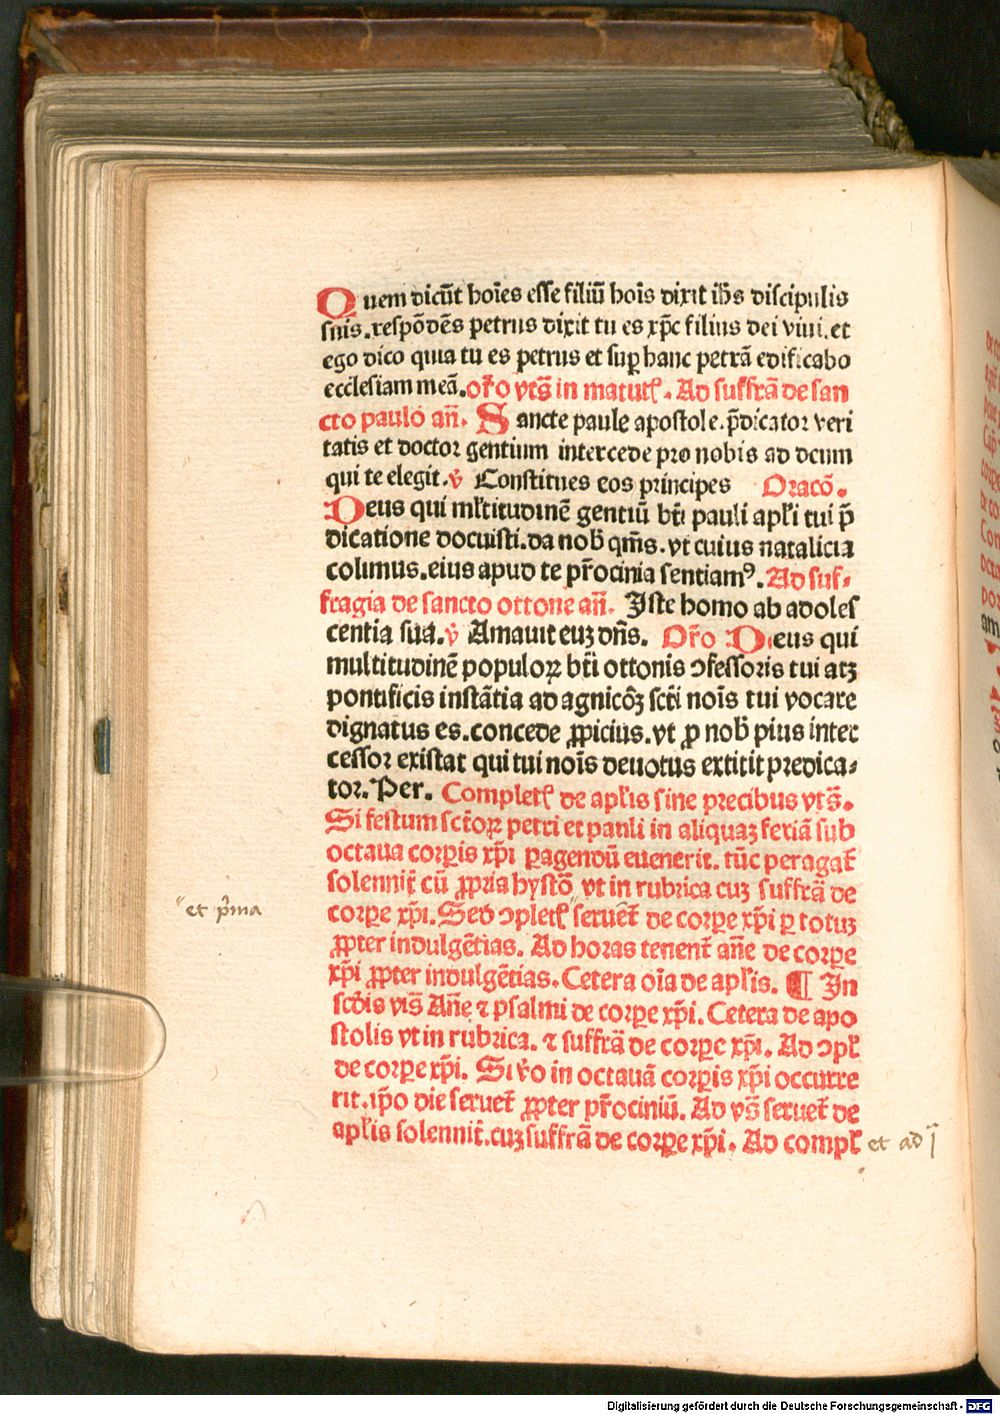 Quem dicūt hoīes esse filiū hoīs dixit ihs discipulis
suis.respōdēs petrus dixit tu es xp̄c filius dei viui.et
ego dico quia tu es petrus et suꝑ hanc petrā edificabo
ecclesiam meā.or̄o vts̄ in matutꝭ. Ad suffrā de san
cto paulo añ. Sancte paule apostole.p̄dicator veri
tatis et doctor gentium intercede pro nobis ad deum
qui te elegit.v̄ Constitues eos principes Oracō.
Deus qui ml̓titudinē gentiū bt̄i pauli apl̓i tui p̄
dicatione docuisti.da nob̄ qm̄s.vt cuius natalicia
colimus.eius apud te pr̄ocinia sentiamꝰ. Ad suf⸗
fragia de sancto ottone añ. Iste homo ab adoles
centia sua.v̄ Amauit euꝫ dn̄s. Or̄o Deus qui
multitudinē populoꝝ bt̄i ottonis ↄfessoris tui atꝫ
pontificis instātia ad agnicōꝫ sct̄i noīs tui vocare
dignatus es.concede ꝓpicius.vt ꝓ nob̄ pius inter
cessor existat qui tui noīs deuotus extitit predica⸗
tor. Per. Completꝭ de apl̓is sine precibus vts̄.
Si festum sct̄oꝝ petri et pauli in aliquaꝫ feriā sub
octaua corꝑis xp̄i ꝑagendū euenerit. tūc peragat̄
solennit̄ cū ꝓpria hystō vt in rubrica cuꝫ suffrā de
corꝑe xp̄i. Sed ↄpletꝭ" seruet̄ de corꝑe xp̄i ꝑ totuꝫ
"et p̄ma
ꝓpter indulgētias. Ad horas tenent̄ añe de corꝑe
xp̄i ꝓpter indulgētias. Cetera oīa de apl̓is. ¶ In
scd̄is vis̄ Añe ⁊ psalmi de corꝑe xp̄i. Cetera de apo
stolis vt in rubrica. ⁊ suffrā de corꝑe xp̄i. Ad ↄpl̓
de corꝑe xp̄i. Si v̓o in octauā corꝑis xp̄i occurre
rit.ip̄o die seruet̄ ꝓpter pr̄ociniū. Ad vs̄ seruet̄ de
apl̓is solennit̄.cuꝫ suffrā de corꝑe xp̄i. Ad compl̓
et ad j
Digitalisierung gefördert durch die Deutsche Forschungsgemeinschaft - DFG